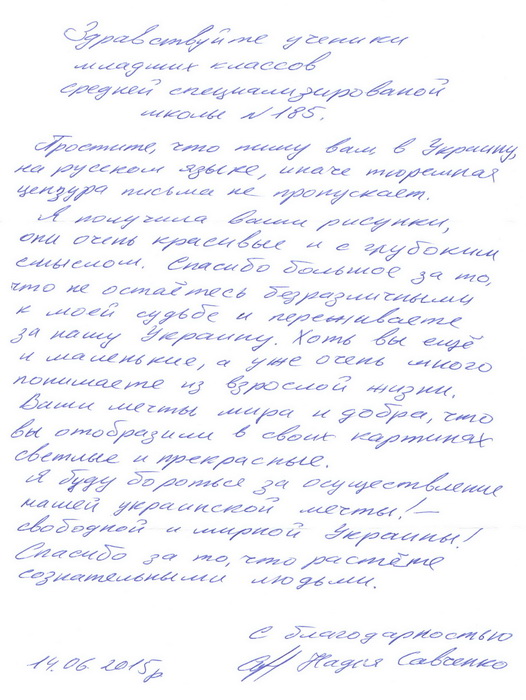 Здравствуйте ученики
младших классов
средней специализированой
школы N 185.
Простите, что пишу вам, в Украину,
на русском языке, иначе тюремная
цензура письма не пропускает.
Я получила Ваши рисунки,
они очень красивые и с глубоким
смыслом. Спасибо большое за то,
что не остаётесь безразличными
к моей судьбе и переживаете
за нашу Украину. Хоть вы ещё
и маленькие, а уже очень много
понимаете из взрослой жизни.
Ваши мечты мира и добра, что
вы отобразили в своих картинах
светлые и прекрасные.
Я буду бороться за осуществление
нашей украинской мечты! –
свободной и мирной Украины!
Спасибо за то, что растёте
сознательными людьми.
С благодарностью
14.06.2015р Надія Савченко